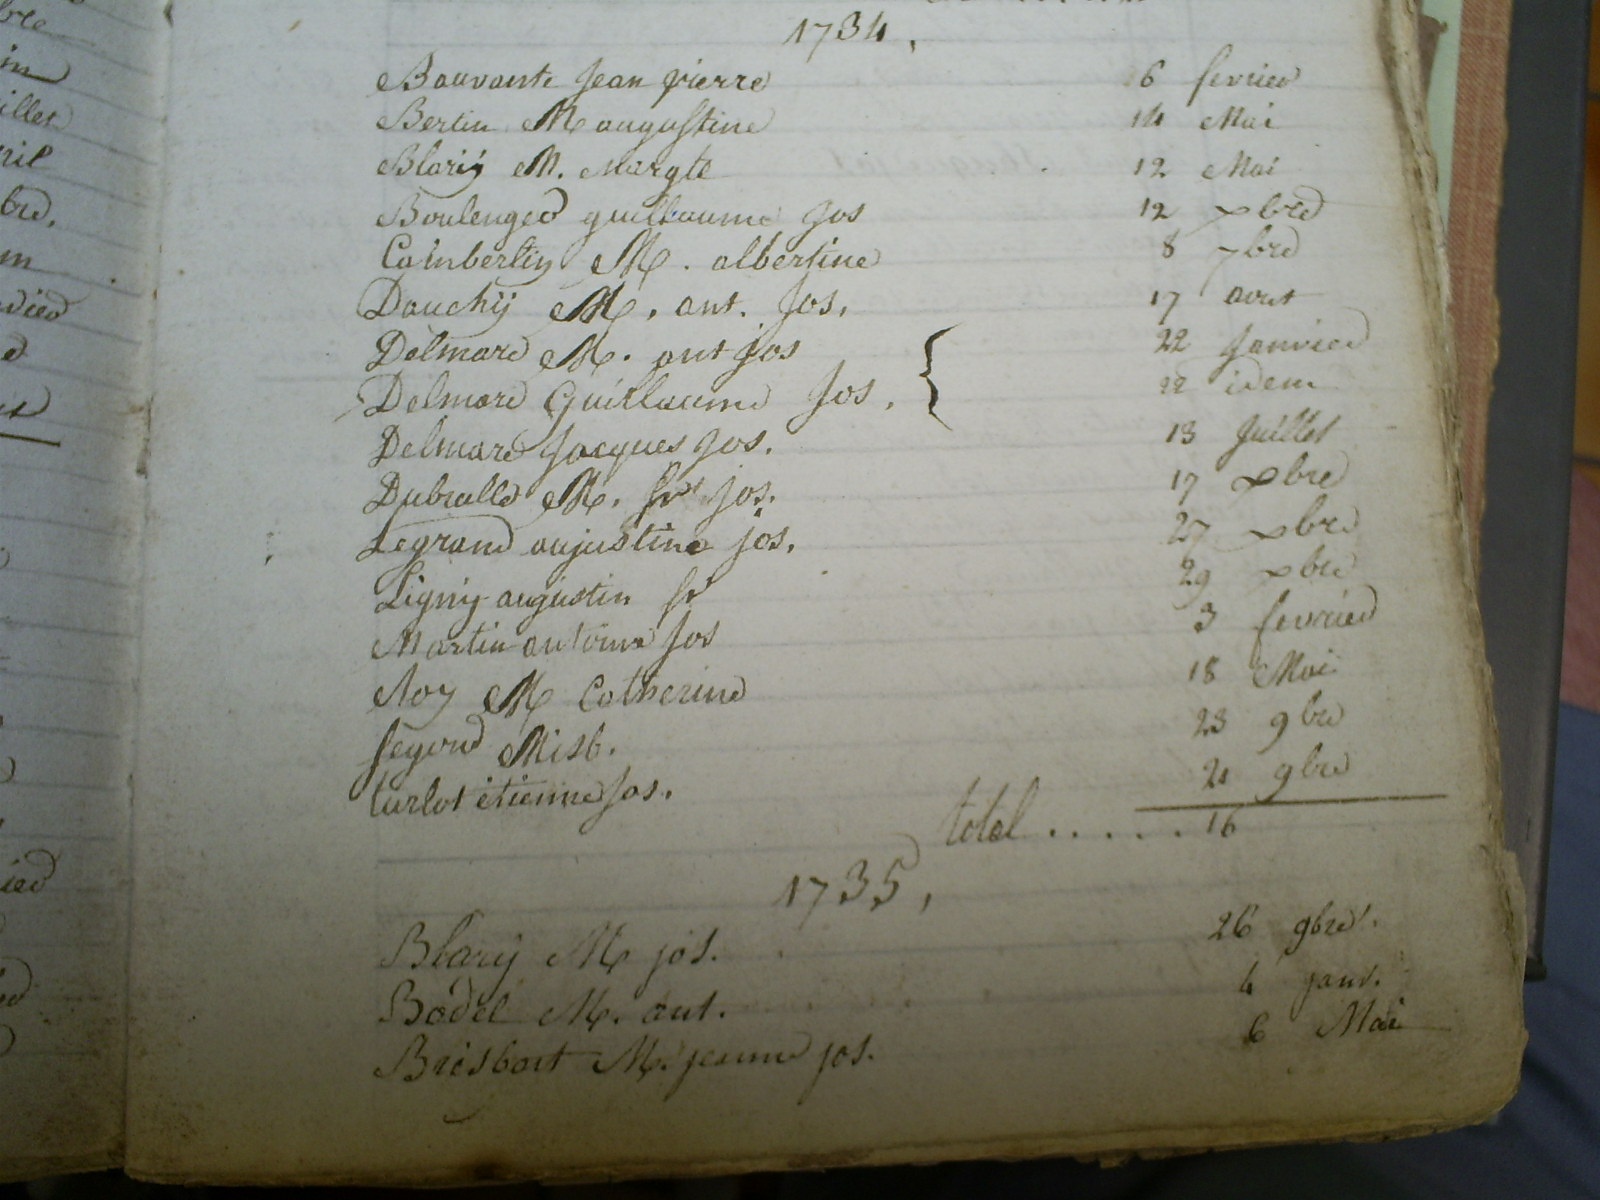 1734,
Bouvante Jean pierre 6 fevrier
Bertin M augustine 14 Mai
Blarij M. Margte 12 Mai
Boulenger guillaume Jos 12 xbre
Cambertin M. albertine 8 7bre
Dauchij M. ant. Jos. 17 aout
Delmare M. ant jos { 22 Janvier
Delmare Guillaume Jos. 22 idem
Delmare Jacques Jos. 13 Juillet
Dubralle M. fr jos. 17 xbre
Legrand augustine jos. 27 xbre
Ligny augustin fr 29 xbre
Martin antoine Jos 3 fevrier
Roy M Catherine 18 Mai
segond 23 9bre
turlot etienne Jos. 21 9bre
total ...... 16
1735,
Blarij M jos. 26 9bre.
Bodel M. ant. 4 janv.
Brisbart M. jeanne jos. 6 Mai